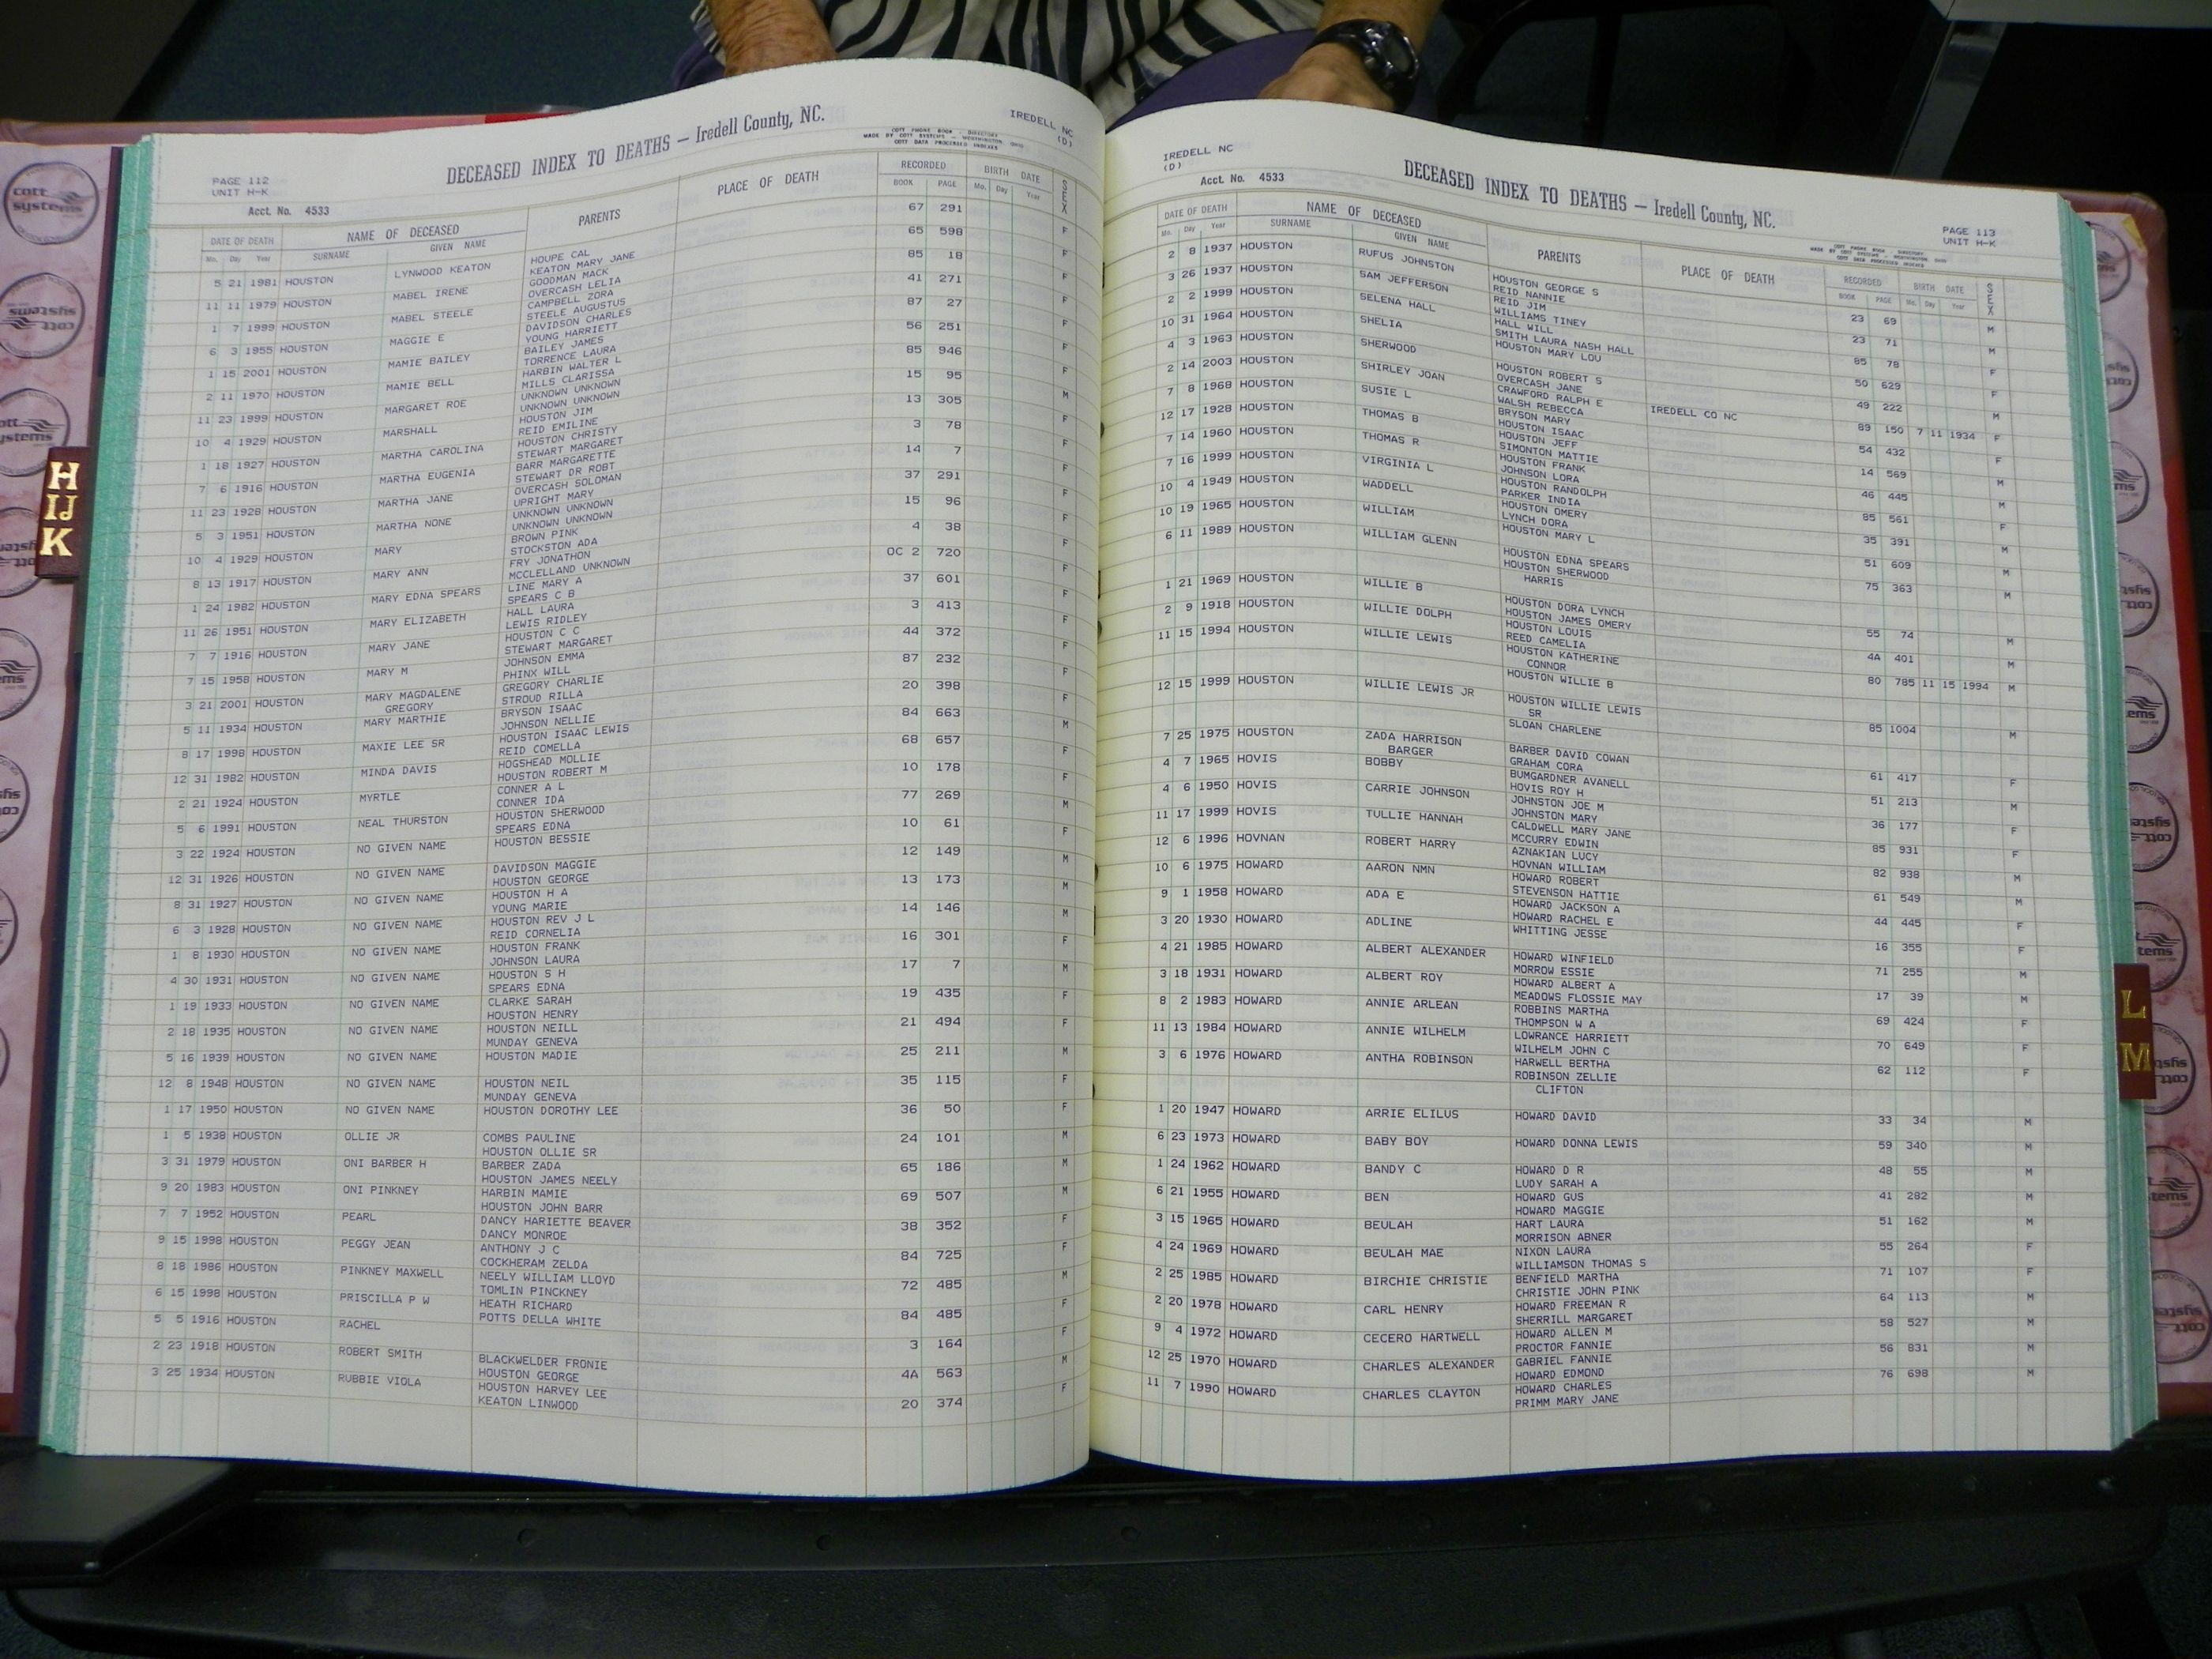 PAGE 112
UNIT H-K
DECEASED INDEX TO DEATHS — Iredell County, NC.
IREDELL NC
(D)
COTT PHONE BOOK - DIRECTORY
MADE BY COTT SYSTEMS - WORTHINGTON, OHIO
COTT DATA PROCESSED INDEXES
Acct. No. 4533
DATE OF DEATH NAME OF DECEASED PARENTS PLACE OF DEATH RECORDED BIRTH DATE SEX
Mo. Day Year SURNAME GIVEN NAME BOOK PAGE Mo. Day Year
5 21 1981 HOUSTON LYNWOOD KEATON HOUPE CAL 67 291 F
KEATON MARY JANE
11 11 1979 HOUSTON MABEL IRENE GOODMAN MACK 65 598 F
OVERCASH LELIA
1 7 1999 HOUSTON MABEL STEELE CAMPBELL ZORA 85 18 F
STEELE AUGUSTUS
6 3 1955 HOUSTON MAGGIE E DAVIDSON CHARLES 41 271 F
YOUNG HARRIETT
1 15 2001 HOUSTON MAMIE BAILEY BAILEY JAMES 87 27 F
TORRENCE LAURA
2 11 1970 HOUSTON MAMIE BELL HARBIN WALTER L 56 251 F
MILLS CLARISSA
11 23 1999 HOUSTON MARGARET ROE UNKNOWN UNKNOWN 85 946 F
UNKNOWN UNKNOWN
10 4 1929 HOUSTON MARSHALL HOUSTON JIM 15 95 M
REID EMILINE
1 18 1927 HOUSTON MARTHA CAROLINA HOUSTON CHRISTY 13 305 F
STEWART MARGARET
7 6 1916 HOUSTON MARTHA EUGENIA BARR MARGARETTE 3 78 F
STEWART DR ROBT
11 23 1928 HOUSTON MARTHA JANE OVERCASH SOLOMAN 14 7 F
UPRIGHT MARY
5 3 1951 HOUSTON MARTHA NONE UNKNOWN UNKNOWN 37 291 F
UNKNOWN UNKNOWN
10 4 1929 HOUSTON MARY BROWN PINK 15 96 F
STOCKSTON ADA
8 13 1917 HOUSTON MARY ANN FRY JONATHON 4 38 F
MCCLELLAND UNKNOWN
1 24 1982 HOUSTON MARY EDNA SPEARS LINE MARY A OC 2 720 F
SPEARS C B
11 26 1951 HOUSTON MARY ELIZABETH HALL LAURA 37 601 F
LEWIS RIDLEY
7 7 1916 HOUSTON MARY JANE HOUSTON C C 3 413 F
STEWART MARGARET
7 15 1958 HOUSTON MARY M JOHNSON EMMA 44 372 F
PHINX WILL
3 21 2001 HOUSTON MARY MAGDALENE GREGORY CHARLIE 87 232 F
GREGORY STROUD RILLA
5 11 1934 HOUSTON MARY MARTHIE BRYSON ISAAC 20 398 F
JOHNSON NELLIE
8 17 1998 HOUSTON MAXIE LEE SR HOUSTON ISAAC LEWIS 84 663 M
REID COMELLA
12 31 1982 HOUSTON MINDA DAVIS HOGSHEAD MOLLIE 68 657 F
HOUSTON ROBERT M
2 21 1924 HOUSTON MYRTLE CONNER A L 10 178 F
CONNER IDA
5 6 1991 HOUSTON NEAL THURSTON HOUSTON SHERWOOD 77 269 M
SPEARS EDNA
3 22 1924 HOUSTON NO GIVEN NAME HOUSTON BESSIE 10 61 F
12 31 1926 HOUSTON NO GIVEN NAME DAVIDSON MAGGIE 12 149 M
HOUSTON GEORGE
8 31 1927 HOUSTON NO GIVEN NAME HOUSTON H A 13 173 M
YOUNG MARIE
6 3 1928 HOUSTON NO GIVEN NAME HOUSTON REV J L 14 146 M
REID CORNELIA
1 8 1930 HOUSTON NO GIVEN NAME HOUSTON FRANK 16 301 F
JOHNSON LAURA
4 30 1931 HOUSTON NO GIVEN NAME HOUSTON S H 17 7 M
SPEARS EDNA
1 19 1933 HOUSTON NO GIVEN NAME CLARKE SARAH 19 435 F
HOUSTON HENRY
2 18 1935 HOUSTON NO GIVEN NAME HOUSTON NEILL 21 494 F
MUNDAY GENEVA
5 16 1939 HOUSTON NO GIVEN NAME HOUSTON MADIE 25 211 M
12 8 1948 HOUSTON NO GIVEN NAME HOUSTON NEIL 35 115 F
MUNDAY GENEVA
1 17 1950 HOUSTON NO GIVEN NAME HOUSTON DOROTHY LEE 36 50 F
1 5 1938 HOUSTON OLLIE JR COMBS PAULINE 24 101 M
HOUSTON OLLIE SR
3 31 1979 HOUSTON ONI BARBER H BARBER ZADA 65 186 M
HOUSTON JAMES NEELY
9 20 1983 HOUSTON ONI PINKNEY HARBIN MAMIE 69 507 M
HOUSTON JOHN BARR
7 7 1952 HOUSTON PEARL DANCY HARIETTE BEAVER 38 352 F
DANCY MONROE
9 15 1998 HOUSTON PEGGY JEAN ANTHONY J C 84 725 F
COCKHERAM ZELDA
8 18 1986 HOUSTON PINKNEY MAXWELL NEELY WILLIAM LLOYD 72 485 M
TOMLIN PINCKNEY
6 15 1998 HOUSTON PRISCILLA P W HEATH RICHARD 84 485 F
POTTS DELLA WHITE
5 5 1916 HOUSTON RACHEL 3 164 F
2 23 1918 HOUSTON ROBERT SMITH BLACKWELDER FRONIE 4A 563 M
HOUSTON GEORGE
3 25 1934 HOUSTON RUBBIE VIOLA HOUSTON HARVEY LEE 20 374 F
KEATON LINWOOD
IREDELL NC
(D)
Acct. No. 4533
DECEASED INDEX TO DEATHS — Iredell County, NC.
PAGE 113
UNIT H-K
COTT PHONE BOOK - DIRECTORY
MADE BY COTT SYSTEMS - WORTHINGTON, OHIO
COTT DATA PROCESSED INDEXES
DATE OF DEATH NAME OF DECEASED PARENTS PLACE OF DEATH RECORDED BIRTH DATE SEX
Mo. Day Year SURNAME GIVEN NAME BOOK PAGE Mo. Day Year
2 8 1937 HOUSTON RUFUS JOHNSTON HOUSTON GEORGE S 23 69 M
REID NANNIE
3 26 1937 HOUSTON SAM JEFFERSON REID JIM 23 71 M
WILLIAMS TINEY
2 2 1999 HOUSTON SELENA HALL HALL WILL 85 78 F
SMITH LAURA NASH HALL
10 31 1964 HOUSTON SHELIA HOUSTON MARY LOU 50 629 F
4 3 1963 HOUSTON SHERWOOD HOUSTON ROBERT S 49 222 M
OVERCASH JANE
2 14 2003 HOUSTON SHIRLEY JOAN CRAWFORD RALPH E IREDELL CO NC 89 150 7 11 1934 F
WALSH REBECCA
7 8 1968 HOUSTON SUSIE L BRYSON MARY 54 432 F
HOUSTON ISAAC
12 17 1928 HOUSTON THOMAS B HOUSTON JEFF 14 569 M
SIMONTON MATTIE
7 14 1960 HOUSTON THOMAS R HOUSTON FRANK 46 445 M
JOHNSON LORA
7 16 1999 HOUSTON VIRGINIA L HOUSTON RANDOLPH 85 561 F
PARKER INDIA
10 4 1949 HOUSTON WADDELL HOUSTON OMERY 35 391 M
LYNCH DORA
10 19 1965 HOUSTON WILLIAM HOUSTON MARY L 51 609 M
6 11 1989 HOUSTON WILLIAM GLENN HOUSTON EDNA SPEARS 75 363 M
HOUSTON SHERWOOD
HARRIS
1 21 1969 HOUSTON WILLIE B HOUSTON DORA LYNCH 55 74 M
HOUSTON JAMES OMERY
2 9 1918 HOUSTON WILLIE DOLPH HOUSTON LOUIS 4A 401 M
REED CAMELIA
11 15 1994 HOUSTON WILLIE LEWIS HOUSTON KATHERINE 80 785 11 15 1994 M
CONNOR
HOUSTON WILLIE B
12 15 1999 HOUSTON WILLIE LEWIS JR HOUSTON WILLIE LEWIS 85 1004 M
SR
SLOAN CHARLENE
7 25 1975 HOUSTON ZADA HARRISON BARBER DAVID COWAN 61 417 F
BARGER GRAHAM CORA
4 7 1965 HOVIS BOBBY BUMGARDNER AVANELL 51 213 M
HOVIS ROY H
4 6 1950 HOVIS CARRIE JOHNSON JOHNSTON JOE M 36 177 F
JOHNSTON MARY
11 17 1999 HOVIS TULLIE HANNAH CALDWELL MARY JANE 85 931 F
MCCURRY EDWIN
12 6 1996 HOVNAN ROBERT HARRY AZNAKIAN LUCY 82 938 M
HOVNAN WILLIAM
10 6 1975 HOWARD AARON NMN HOWARD ROBERT 61 549 M
STEVENSON HATTIE
9 1 1958 HOWARD ADA E HOWARD JACKSON A 44 445 F
HOWARD RACHEL E
3 20 1930 HOWARD ADLINE WHITTING JESSE 16 355 F
4 21 1985 HOWARD ALBERT ALEXANDER HOWARD WINFIELD 71 255 M
MORROW ESSIE
3 18 1931 HOWARD ALBERT ROY HOWARD ALBERT A 17 39 M
MEADOWS FLOSSIE MAY
8 2 1983 HOWARD ANNIE ARLEAN ROBBINS MARTHA 69 424 F
THOMPSON W A
11 13 1984 HOWARD ANNIE WILHELM LOWRANCE HARRIETT 70 649 F
WILHELM JOHN C
3 6 1976 HOWARD ANTHA ROBINSON HARWELL BERTHA 62 112 F
ROBINSON ZELLIE
CLIFTON
1 20 1947 HOWARD ARRIE ELILUS HOWARD DAVID 33 34 M
6 23 1973 HOWARD BABY BOY HOWARD DONNA LEWIS 59 340 M
1 24 1962 HOWARD BANDY C HOWARD D R 48 55 M
LUDY SARAH A
6 21 1955 HOWARD BEN HOWARD GUS 41 282 M
HOWARD MAGGIE
3 15 1965 HOWARD BEULAH HART LAURA 51 162 M
MORRISON ABNER
4 24 1969 HOWARD BEULAH MAE NIXON LAURA 55 264 F
WILLIAMSON THOMAS S
2 25 1985 HOWARD BIRCHIE CHRISTIE BENFIELD MARTHA 71 107 F
CHRISTIE JOHN PINK
2 20 1978 HOWARD CARL HENRY HOWARD FREEMAN R 64 113 M
SHERRILL MARGARET
9 4 1972 HOWARD CECERO HARTWELL HOWARD ALLEN M 58 527 M
PROCTOR FANNIE
12 25 1970 HOWARD CHARLES ALEXANDER GABRIEL FANNIE 56 831 M
HOWARD EDMOND
11 7 1990 HOWARD CHARLES CLAYTON HOWARD CHARLES 76 698 M
PRIMM MARY JANE
H
IJ
K
L
M
cott
systems